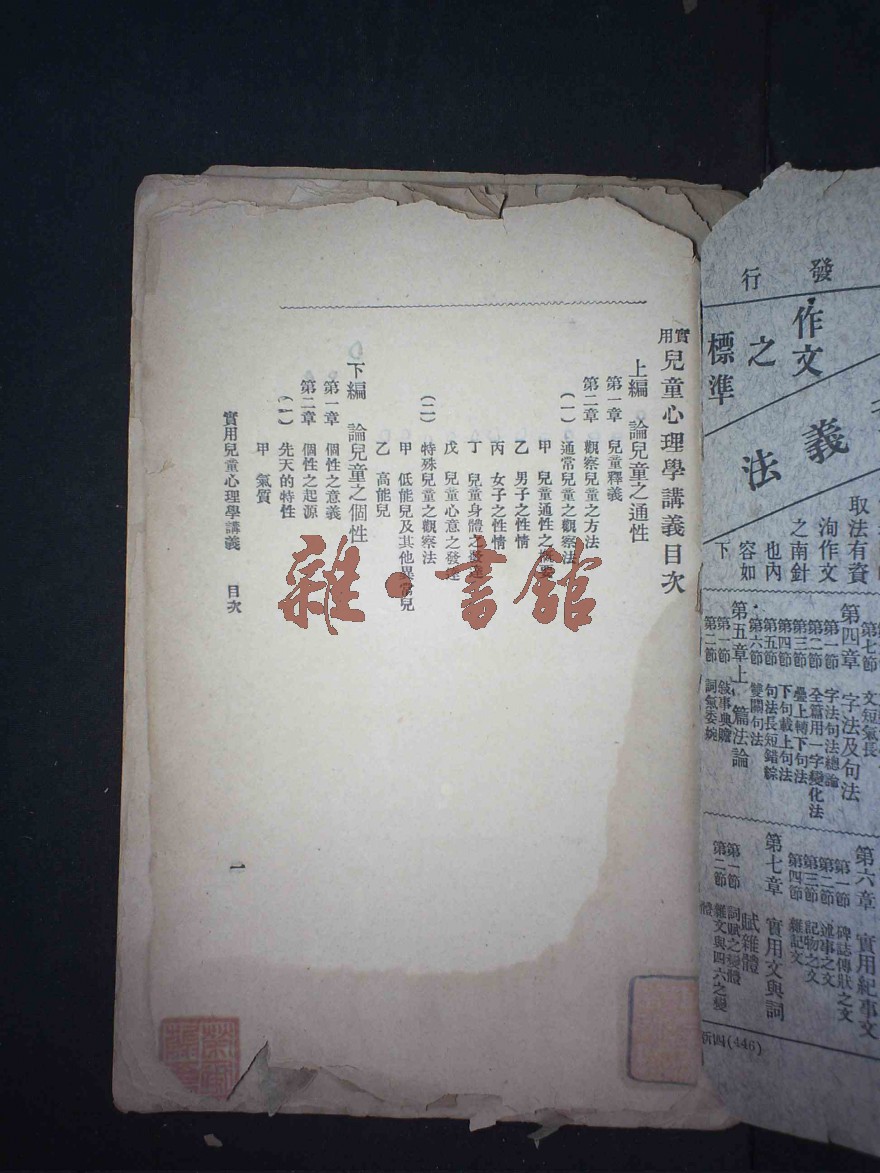 發行
作文
之
標準
義
法
取法有資
洵作文
之南針
也內
容如
下
第四章　字法及句法
第一節　字法句法總論
第二節　全篇用一字變化法
第三節　疊上轉下句法
第四節　下句載上句法
第五節　句法長短錯綜
第六節　雙關句法
第五章上　篇法論
第一節　敍事典贍
第二節　詞氣委婉
第六章　實用紀事文
第一節　碑誌傳狀之文
第二節　述事之文
第三節　記物之文
第四節　雜記文
第七章　實用文與詞
賦雜體
第一節　詞賦之變體
第二節　雜文與四六之變
體
(446)
實用兒童心理學講義目次
上編　論兒童之通性
第一章　兒童釋義
第二章　觀察兒童之方法
（一）通常兒童之觀察法
甲　兒童通性之概要
乙　男子之性情
丙　女子之性情
丁　兒童身體之發達
戊　兒童心意之發達
（二）特殊兒童之觀察法
甲　低能兒及其他異常兒
乙　高能兒
下編　論兒童之個性
第一章　個性之意義
第二章　個性之起源
（一）先天的特性
甲　氣質
實用兒童心理學講義　目次
一
雜·書館